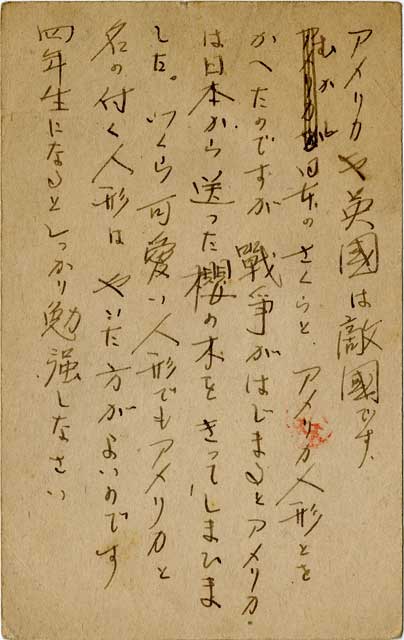 アメリカや英國は敵國です、
むかし日本のさくらと、アメリカ人形とを
かへたのですが戰爭がはじまるとアメリカ
は日本から送った櫻の木をきってしまひま
した。いくら可愛い人形でもアメリカと
名の付く人形はやいた方がよいのです
四年生になるとしっかり勉強しなさい